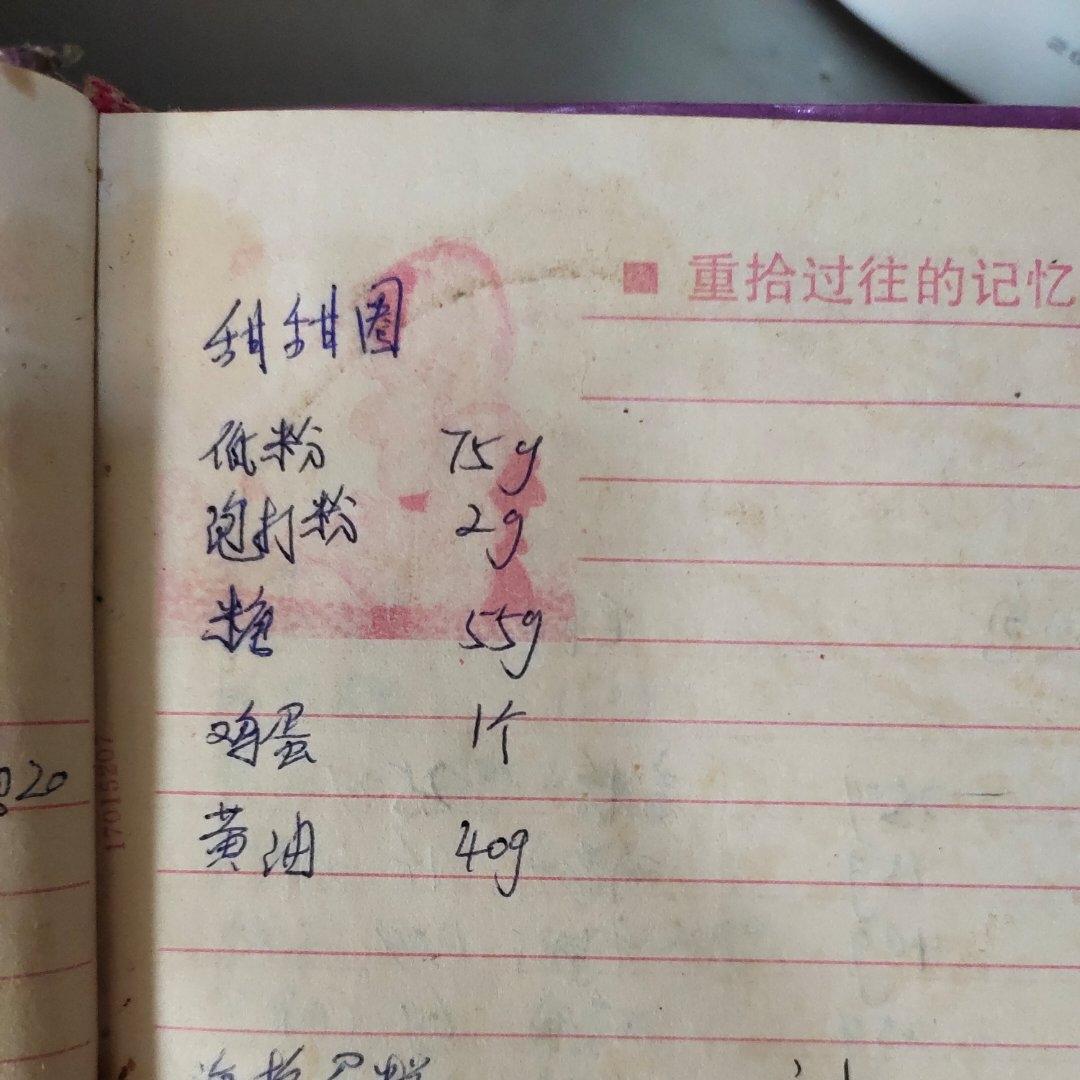 重拾过往的记忆
甜甜圈
低粉 75g
泡打粉 2g
糖 55g
鸡蛋 1个
黄油 40g
20
17015207